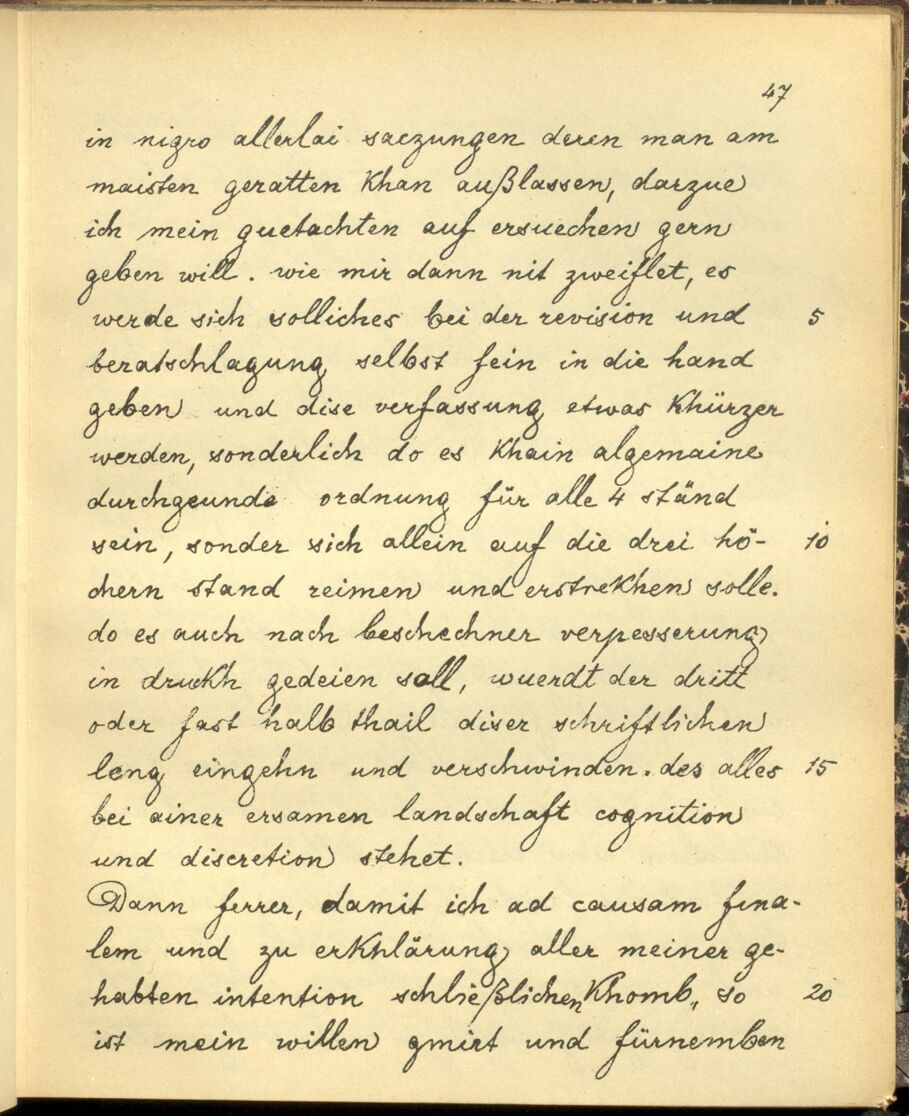 47
in nigro allerlai saczungen deren man am
maisten geratten khan außlassen, darzue
ich mein guetachten auf ersuechen gern
geben will. wie mir dann nit zweiflet, es
werde sich solliches bei der revision und 5
beratschlagung selbst fein in die hand
geben und dise verfassung etwas khürzer
werden, sonderlich do es khain algemaine
durchgeunde ordnung für alle 4 ständ
sein, sonder sich allein auf die drei hö- 10
chern stand reimen und erstrekhen solle.
do es auch nach beschechner verpesserung
in druckh gedeien soll, wuerdt der dritt
oder fast halb thail diser schriftlichen
leng eingehn und verschwinden. des alles 15
bei ainer ersamen landschaft cognition
und discretion stehet.
Dann ferrer, damit ich ad causam fina-
lem und zu erkhlärung aller meiner ge-
habten intention schließlichen khomb, so 20
ist mein willen gmiet und fürnemben